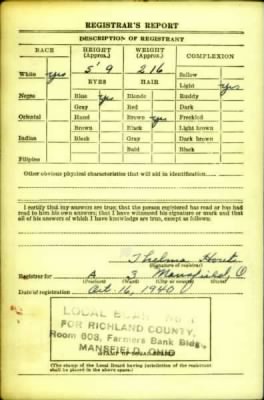 REGISTRAR'S REPORT
DESCRIPTION OF REGISTRANT
RACE HEIGHT (Approx.) WEIGHT (Approx.) COMPLEXION
5' 9 216
White yes Sallow
EYES HAIR Light yes
Negro Blue yes Blonde Ruddy
Gray Red Dark
Oriental Hazel Brown yes Freckled
Brown Black Light brown
Indian Black Gray Dark brown
Bald Black
Filipino
Other obvious physical characteristics that will aid in identification
I certify that my answers are true; that the person registered has read or has had
read to him his own answers; that I have witnessed his signature or mark and that
all of his answers of which I have knowledge are true, except as follows:
Thelma
(Signature of registrar)
Registrar for A 3 Mansfield, O.
(Precinct) (Ward) (City or county)
Date of registration Oct. 16, 1940
LOCAL BOARD NO. 1
FOR RICHLAND COUNTY,
Room 608, Farmers Bank Bldg.,
MANSFIELD, OHIO
(STAMP OF LOCAL BOARD)
(The stamp of the Local Board having jurisdiction of the registrant
shall be placed in the above space.)